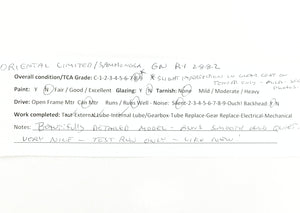 ORIENTAL LIMITED/SAMHONGSA GN RY 2882
Overall condition/TCA Grade: C-1-2-3-4-5-6-7-8-9 * SLIGHT IMPERFECTION IN CLEAR COAT ON
TENDER ONLY - SEE
PHOTOS
Paint: Y N Fair / Good / Excellent Glazing: Y N Tarnish: None / Mild / Moderate / Heavy
Drive: Open Frame Mtr Can Mtr Runs / Runs Well - Noise: Silent-2-3-4-5-6-7-8-9-Ouch! Backhead: Y N
Work completed: External Lube-Internal Lube/Gearbox-Tube Replace-Gear Replace-Electrical-Mechanical
Notes: BEAUTIFULLY DETAILED MODEL - RUNS SMOOTH AND QUIET.
VERY NICE - TEST RUN ONLY - LIKE NEW!